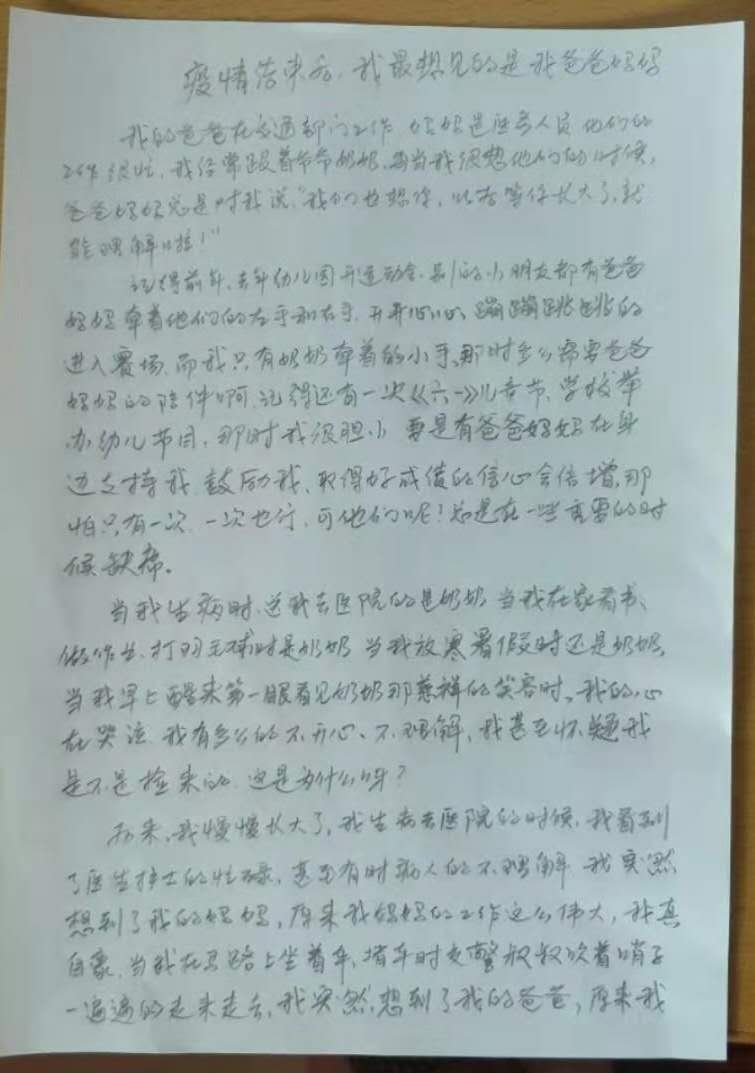 疫情结束后，我最想见的是我爸爸妈妈
我的爸爸在交通部门工作 妈妈是医务人员 他们的
工作很忙，我经常跟着爷爷奶奶，每当我很想他们的时候，
爸爸妈妈总是对我说，“我们也想你，以后等你长大了，就
能理解啦！”
记得前年、去年幼儿园开运动会，别的小朋友都有爸爸
妈妈牵着他们的左手和右手，开开心心、蹦蹦跳跳的
进入赛场，而我只有奶奶牵着的小手，那时多么需要爸爸
妈妈的陪伴啊，记得还有一次《六一》儿童节，学校举
办幼儿节目，那时我很胆小 要是有爸爸妈妈在身
边支持我，鼓励我，取得好成绩的信心会倍增，那
怕只有一次，一次也行，可他们呢！总是在一些重要的时
候缺席。
当我生病时，送我去医院的是奶奶 当我在家看书、
做作业、打羽毛球时是奶奶 当我放寒暑假时还是奶奶，
当我早上醒来第一眼看见奶奶那慈祥的笑容时，我的心
在哭泣 我有多么的不开心、不理解，我甚至怀疑我
是不是捡来的，这是为什么呀？
后来，我慢慢长大了，我生病去医院的时候，我看到
了医生护士的忙碌，甚至有时病人的不理解 我突然
想到了我的妈妈，原来我妈妈的工作这么伟大，我真
自豪，当我在马路上坐着车，堵车时交警叔叔吹着哨子
一遍遍的走来走去，我突然，想到了我的爸爸，原来我